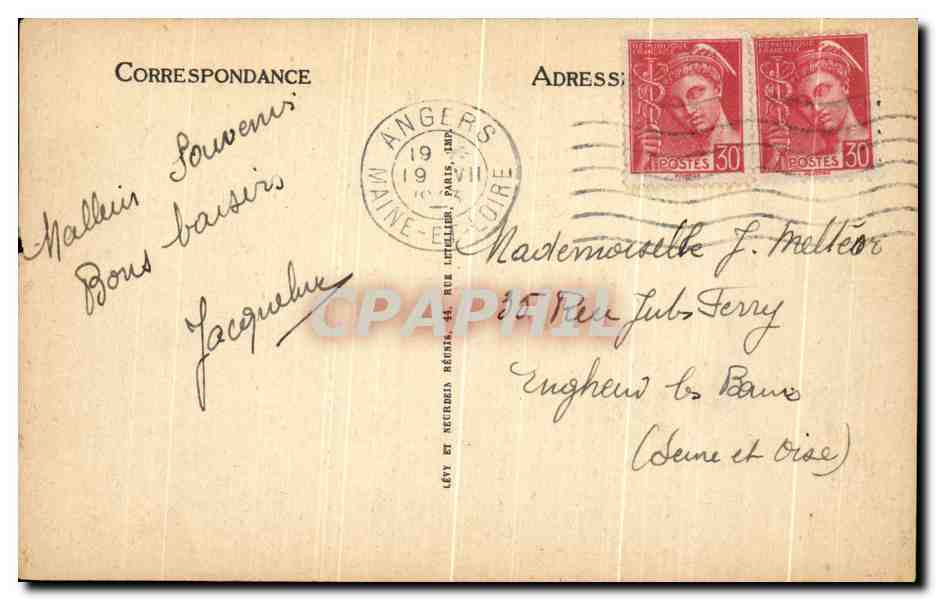 CORRESPONDANCE
ADRESS
Meilleurs Souvenirs
Bons baisers
Jacqueline
ANGERS
19
19 VII
MAINE-ET-LOIRE
RÉPUBLIQUE FRANÇAISE
POSTES 30
RÉPUBLIQUE FRANÇAISE
POSTES 30
LÉVY ET NEURDEIN RÉUNIS, 44, RUE LETELLIER, PARIS, IMP.
CPAPHIL
Mademoiselle J. Meltéor
35 Rue Jules Ferry
Enghein les Bains
(Seine et Oise)